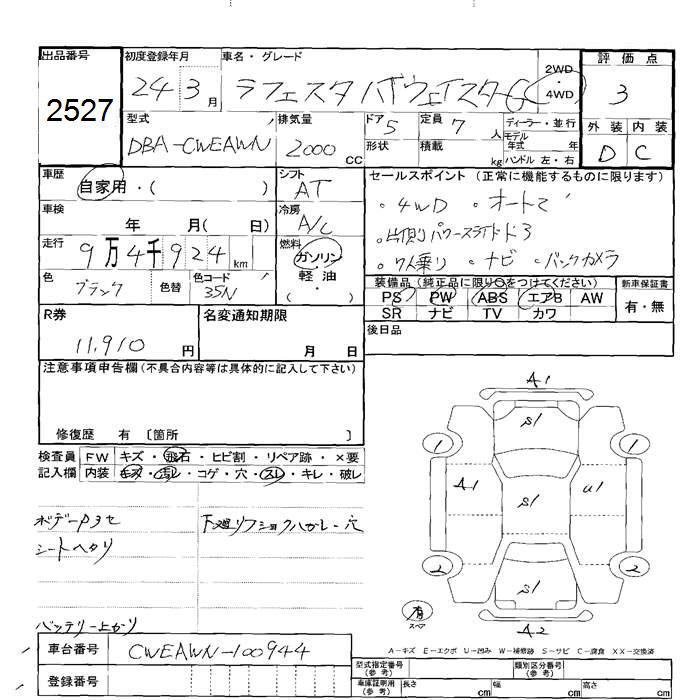 出品番号 初度登録年月 車名・グレード 2WD・4WD 評価点
2527 24 3月 ラフェスタハイウェイスターG 3
型式 排気量 ドア 定員 ディーラー・並行 外装 内装
DBA-CWEAWN 2000cc 5 7人 モデル年式 年 D C
形状 積載 kg ハンドル 左・右
車歴 シフト セールスポイント (正常に機能するものに限ります)
自家用・( ) AT
車検 冷房 ・4WD ・オート
年 月( 日) A/C パワースライド
走行 燃料 ・7人乗り ・ナビ ・バックカメラ
9万4千924km ガソリン
軽油・( )
色 色替 色コード 装備品(純正品に限り○をつけてください) 新車保証書
ブラック 35N PS PW ABS エアB AW 有・無
SR ナビ TV カワ
R券 名変通知期限 後日品
11,910円 月 日
注意事項申告欄(不具合内容等は具体的に記入して下さい)
修復歴 有 〔箇所 〕
A1
S1
1 1
A1 S1 U1
2 2
S1
有 スペア
A2
検査員 FW キズ・飛石・ヒビ割・リペア跡・×要
記入欄 内装 キズ・汚レ・コゲ・穴・スレ・キレ・破レ
シートヘタリ
バッテリー上がり
車台番号 CWEAWN-100944
登録番号
A-キズ E-エクボ U-凹み W-補修跡 S-サビ C-腐食 XX-交換済
型式指定番号(参考) 類別区分番号(参考)
車庫証明用(参考) 長さ cm 幅 cm 高さ cm